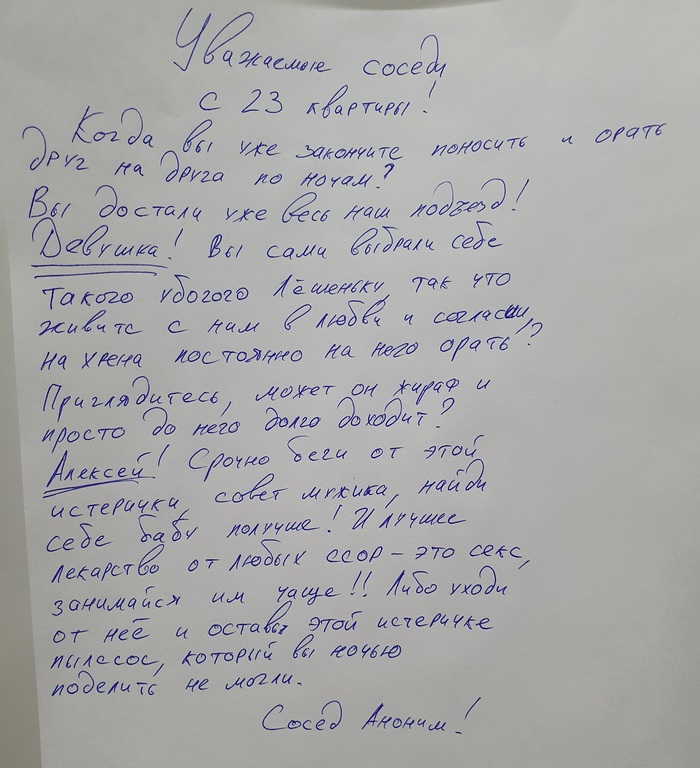 Уважаемые соседи
с 23 квартиры!
Когда вы уже закончите поносить и орать
друг на друга по ночам?
Вы достали уже весь наш подъезд!
Девушка! Вы сами выбрали себе
такого убогого Лёшеньку, так что
живите с ним в любви и согласии,
на хрена постоянно на него орать?
Приглядитесь, может он жираф и
просто до него долго доходит?
Алексей! Срочно беги от этой
истерички, совет мужика, найди
себе бабу получше! И лучшее
лекарство от любых ссор - это секс,
занимайся им чаще!! Либо уходи
от неё и оставь этой истеричке
пылесос, который вы ночью
поделить не могли.
Сосед Аноним!